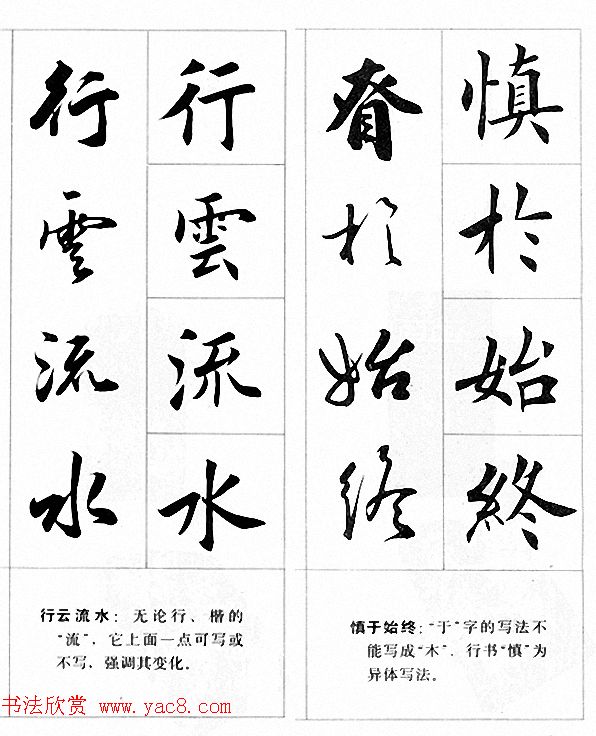 慎於始終
昚於始終
慎于始终：“于”字的写法不
能写成“木”．行书“慎”为
异体写法。
行雲流水
行雲流水
行云流水：无论行、楷的
“流”，它上面一点可写或
不写，强调其变化。
书法欣赏 www.yac8.com